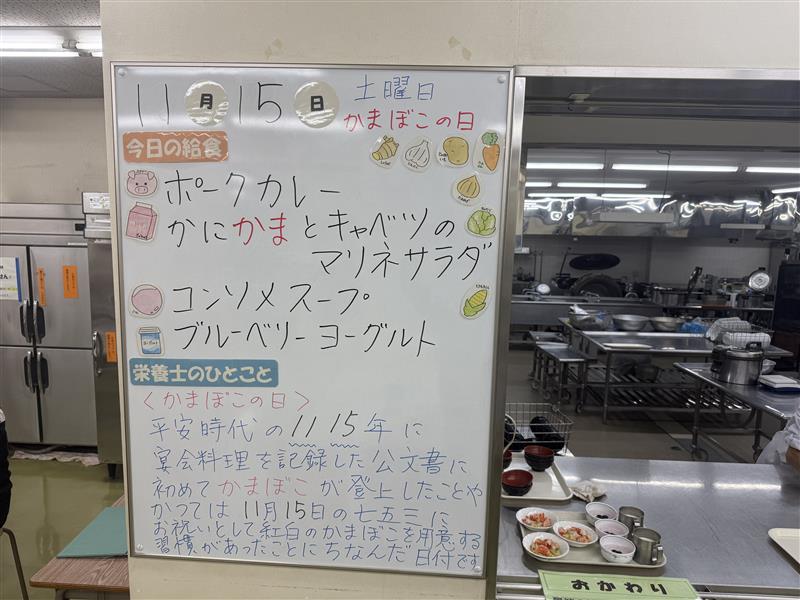 11月15日 土曜日
かまぼこの日
今日の給食
ポークカレー
かにかまとキャベツの
マリネサラダ
コンソメスープ
ブルーベリーヨーグルト
栄養士のひとこと
〈かまぼこの日〉
平安時代の1115年に
宴会料理を記録した公文書に
初めてかまぼこが登上したことや
かつては11月15日の七五三に
お祝いとして紅白のかまぼこを用意する
習慣があったことにちなんだ日付です
おかわり